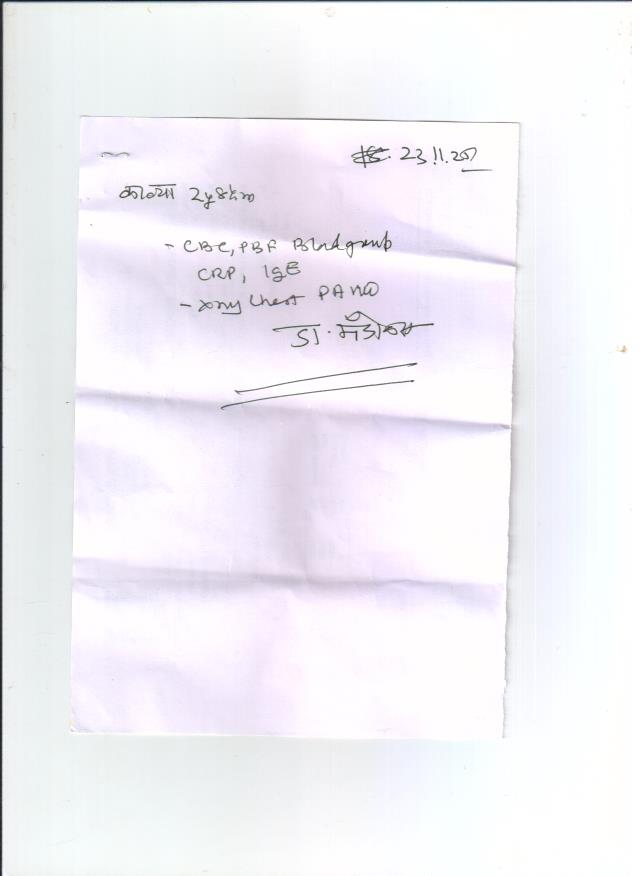 23.11.20
काव्या 2y
- CBC, PBF Blood group
CRP, IgE
- Xray Chest PA
डा.